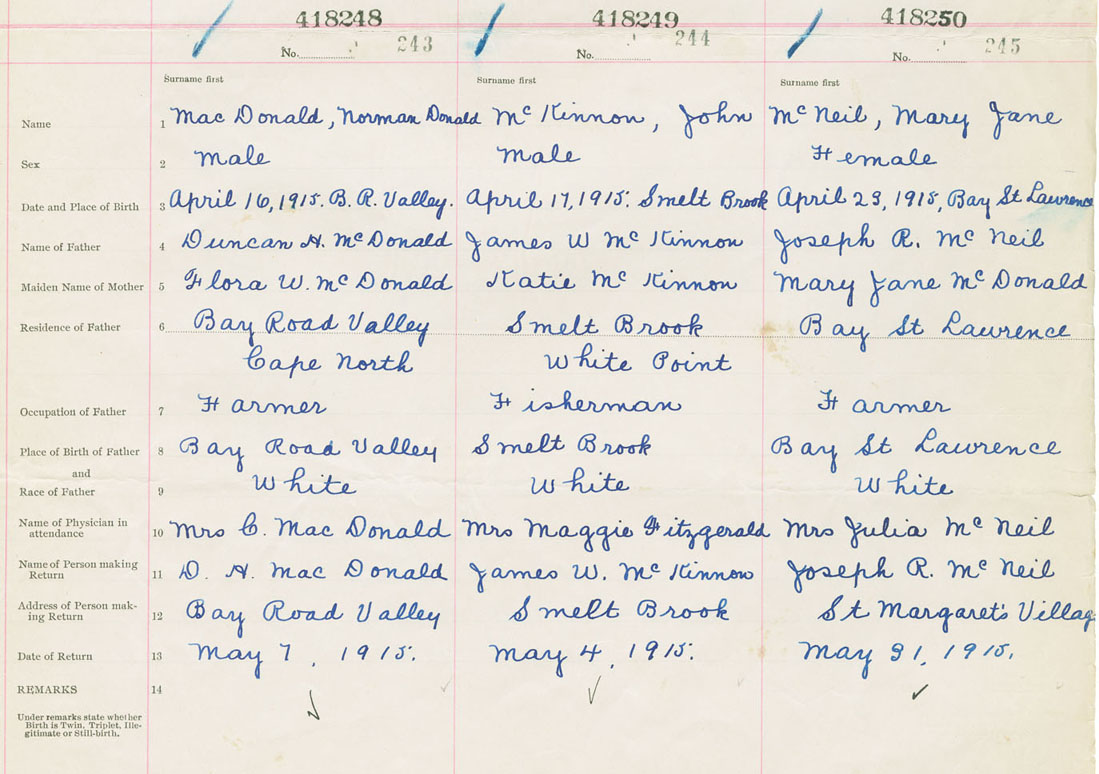 418248 418249 418250
No. 243 No. 244 No. 245
Surname first Surname first Surname first
Name 1 Mac Donald, Norman Donald Mc Kinnon, John Mc Neil, Mary Jane
Sex 2 Male Male Female
Date and Place of Birth 3 April 16, 1915. B. R. Valley. April 17, 1915. Smelt Brook April 23, 1915, Bay St Lawrence
Name of Father 4 Duncan H. McDonald James W McKinnon Joseph R. McNeil
Maiden Name of Mother 5 Flora W. McDonald Katie McKinnon Mary Jane McDonald
Residence of Father 6 Bay Road Valley Smelt Brook Bay St Lawrence
Cape North White Point
Occupation of Father 7 Farmer Fisherman Farmer
Place of Birth of Father 8 Bay Road Valley Smelt Brook Bay St Lawrence
and
Race of Father 9 White White White
Name of Physician in
attendance 10 Mrs C. Mac Donald Mrs Maggie Fitzgerald Mrs Julia McNeil
Name of Person making
Return 11 D. H. Mac Donald James W. McKinnon Joseph R. McNeil
Address of Person mak-
ing Return 12 Bay Road Valley Smelt Brook St Margaret's Villag
Date of Return 13 May 7, 1915. May 4, 1915. May 31, 1915.
REMARKS 14
Under remarks state whether
Birth is Twin, Triplet, Ille-
gitimate or Still-birth.